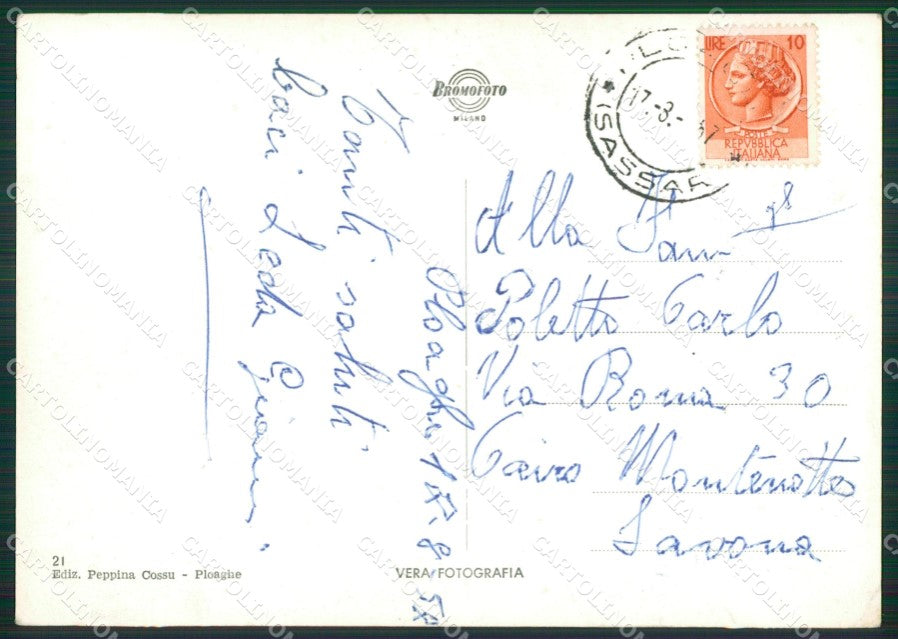 BROMOFOTO
MILANO
LIRE 10
POSTE
REPVBBLICA
ITALIANA
17-8-57
(SASSAR
Ploaghe 17-8-57
Tanti saluti
baci Leda Gianni.
Alla Fam gl
Poletto Carlo
Via Roma 30
Cairo Montenotte
Savona
21
Ediz. Peppina Cossu - Ploaghe
VERA FOTOGRAFIA
CARTOLINOMANIA